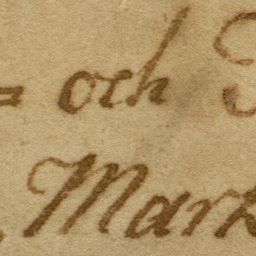 = och
Mark